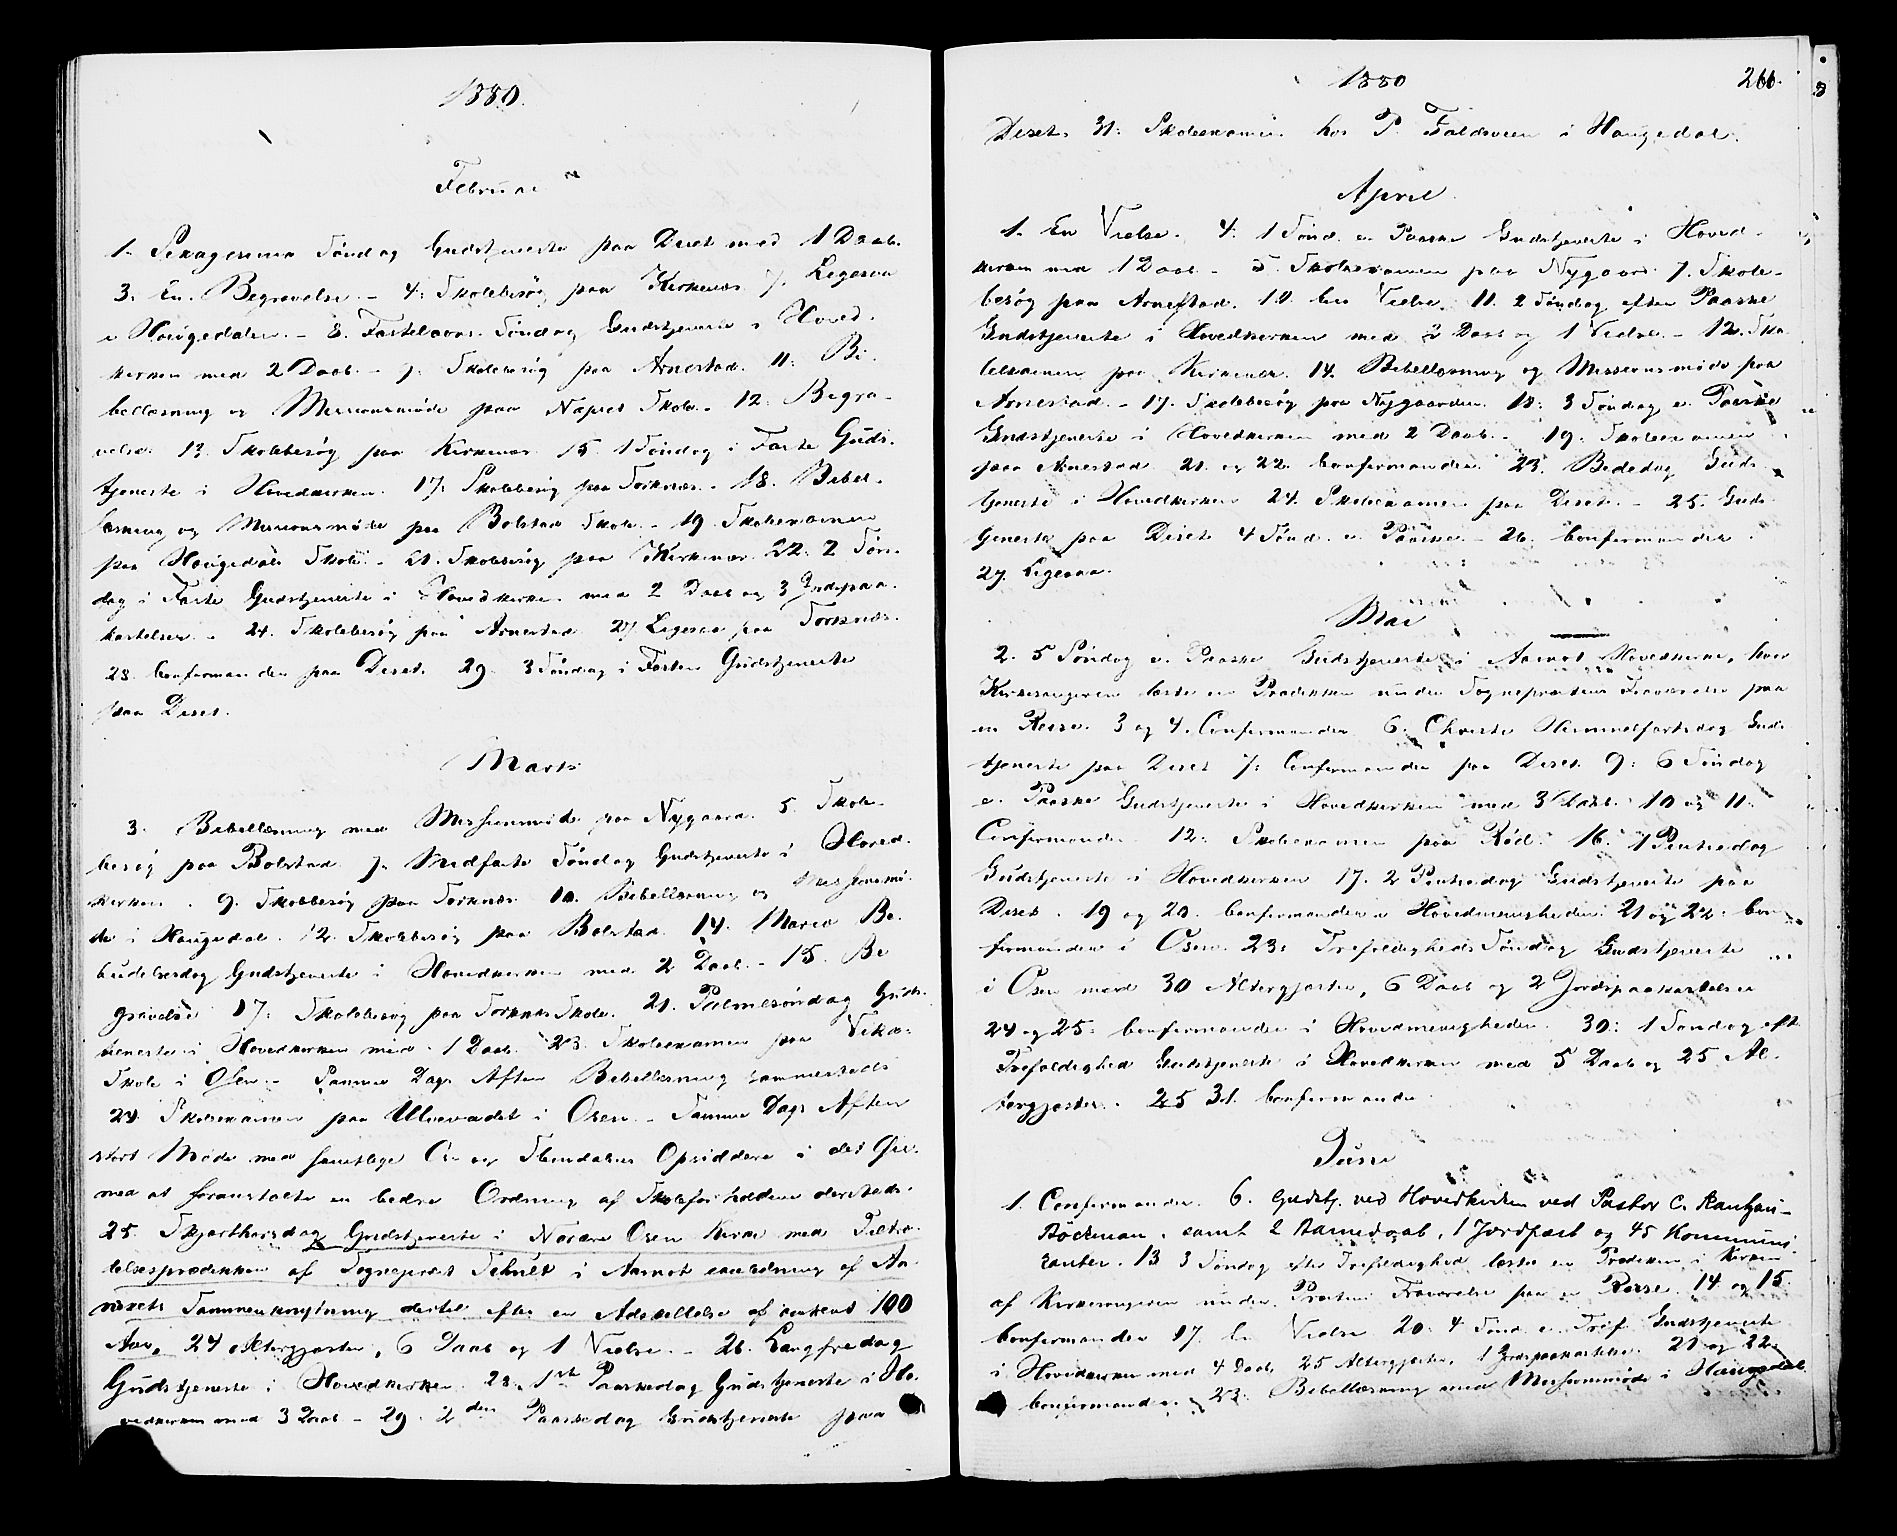 1880.
Februar
1. Sexagesima Søndag Gudstjeneste paa Deset med 1 Daab.
3. En Begravelse. - 4: Skolebesøg paa Kirkenær 7. Ligesaa
i Haugedalen. - 8. Fastelavns Søndag Gudstjeneste i Hoved-
kirken med 2 Daab. - 9. Skolebesøg paa Arnestad. 11: Bi-
bellæsning og Missionsmøde paa Næpset Skole. - 12. Begra-
velse. 13. Skolebesøg paa Kirkenær 15. 1 Søndag i Faste Guds-
tjeneste i Hovedkirken. 17: Skolebesøg paa Torknæs. - 18. Bibel-
læsning og Missionsmøde paa Bolstad Skole. - 19. Skolexamen
paa Haugedals Skole. - 21. Skolebesøg paa Kirkenær. 22. 2 Søn-
dag i Faste Gudstjeneste i Hovedkirken med 2 Daab og 3 Jordspaa-
kastelser. - 24. Skolebesøg paa Arnestad 27 Ligesaa paa Torknæs.
28. Confirmander paa Deset. 29. 3 Søndag i Fasten Gudstjeneste
paa Deset.
Marts
3. Bibellæsning med Missionsmøde paa Nygaard. 5. Skole-
besøg paa Bolstad. 7. Midfaste Søndag Gudstjeneste i Hoved-
kirken. 9. Skolebesøg paa Torknæs 10. Bibellæsning og Missionsmø-
de i Haugedal. 12. Skolebesøg paa Bolstad. 14. Mariæ Be-
budelsesdag Gudstjeneste i Hovedkirken med 2 Daab. - 15. Be
gravelse 17: Skolebesøg paa Torknæs Skole. 21. Palmesøndag Guds-
tieneste i Hovedkirken med 1 Daab. 23. Skoleexamen paa
Skole i Osen. - Samme Dags Aften Bibellæsning sammesteds
24 Skolexamen paa Ulvevadet i Osen. - Samme Dags Aften
stort Møde med samtlige Os- og Opsiddere i det Øie-
med at foranstalte en bedre Ordning af Skoleforholdene dersteds.
25. Skjærthorsdag Gudstjeneste i Nordre Osen Kirke med Tiltræ-
delsesprædiken af Sogneprest i Aamot i anledning af An-
nexets Sammenknytning dertil efter en Adskillelse af omtrent 100
Aar, 24 Altergjæster, 6 Daab og 1 Vielse. - 26. Langfredag
Gudstjeneste i Hovedkirken. 28. 1ste Paaskedag Gudstjeneste i Ho-
vedkirken med 3 Daab - 29. 2den Paaskedag Gudstjeneste paa
1880
266.
Deset. 31: Skoleexamen hos P. i Haugedal.
April
1. En Vielse. 4. 1 Sønd. e. Paaske Gudstjeneste i Hoved-
kirken med 1 Daab - 5. Skoleexamen paa Nygaard 7. Skole-
besøg paa Arnestad. 10. En Vielse. 11. 2 Søndag efter Paaske
Gudstjeneste i Hovedkirken med 2 Daab og 1 Vielse. - 12. Sko-
lexamen paa Kirkenær. 14. Bibellæsning og Missionsmøde paa
Arnestad. - 17. Skolebesøg paa Nygaarden. 18: 3 Søndag e. Paaske
Gudstjeneste i Hovedkirken med 2 Daab. - 19. Skoleexamen
paa Arnestad 21. og 22. Confirmander. 23. Bededag Guds-
tjeneste i Hovedkirken 24. Skoleexamen paa Deset. - 25. Guds-
tjeneste paa Deset 4 Sønd. e. Paaske. - 26. Confirmander.
27. Ligesaa.
Mai
2. 5 Søndag e. Paaske Gudstjeneste i Aamot Hovedkirke, hvor
Kirkesangeren læste en Prædiken under Sogneprestens Fraværelse paa
en Reise. 3 og 4. Confirmander 6. Christi Himmelfartsdag Guds
tjeneste paa Deset 7: Confirmander paa Deset. 9: 6 Søndag
e. Paaske Gudstjeneste i Hovedkirken med 3 Daab. 10 og 11.
Confirmander. 12: Skoleexamen paa Rød. 16. 1 Pintsedag
Gudstjeneste i Hovedkirken 17. 2 Pintsedag Gudstjeneste paa
Deset. 19 og 20. Confirmander i Hovedmenigheden. 21 og 22. Con
firmander i Osen. 23: Trefoldigheds Søndag Gudstjeneste
i Osen med 30 Altergjæster, 6 Daab og 2 Jordspaakastelser
24 og 25: Confirmander i Hovedmenigheden. 30: 1 Søndag eft.
Trefoldighed Gudstjeneste i Hovedkirken med 5 Daab og 25 Al-
tergjæster. 25 31. Confirmander.
Juni
1. Confirmander. 6. Gudstj. ved Hovedkirken ved Pastor C. Rantzau-
Böckman, samt 2 Barnedaab, 1 Jordfæst og 45 Kommuni-
kanter. 13 3 Søndag efter Trefoldighed læste en Prædiken i Kirken
af Kirkesangeren under Præstens Fraværelse paa en Reise. 14 og 15.
Confirmander 17. En Vielse 20. 4 Sønd. e. Tref. Gudstjeneste
i Hovedkirken med 4 Daab, 25 Altergjæster, 1 Jordspaakastelse. 21 og 22.
Confirmander. 23. Bibellæsning med Missionsmøde i Haugedal